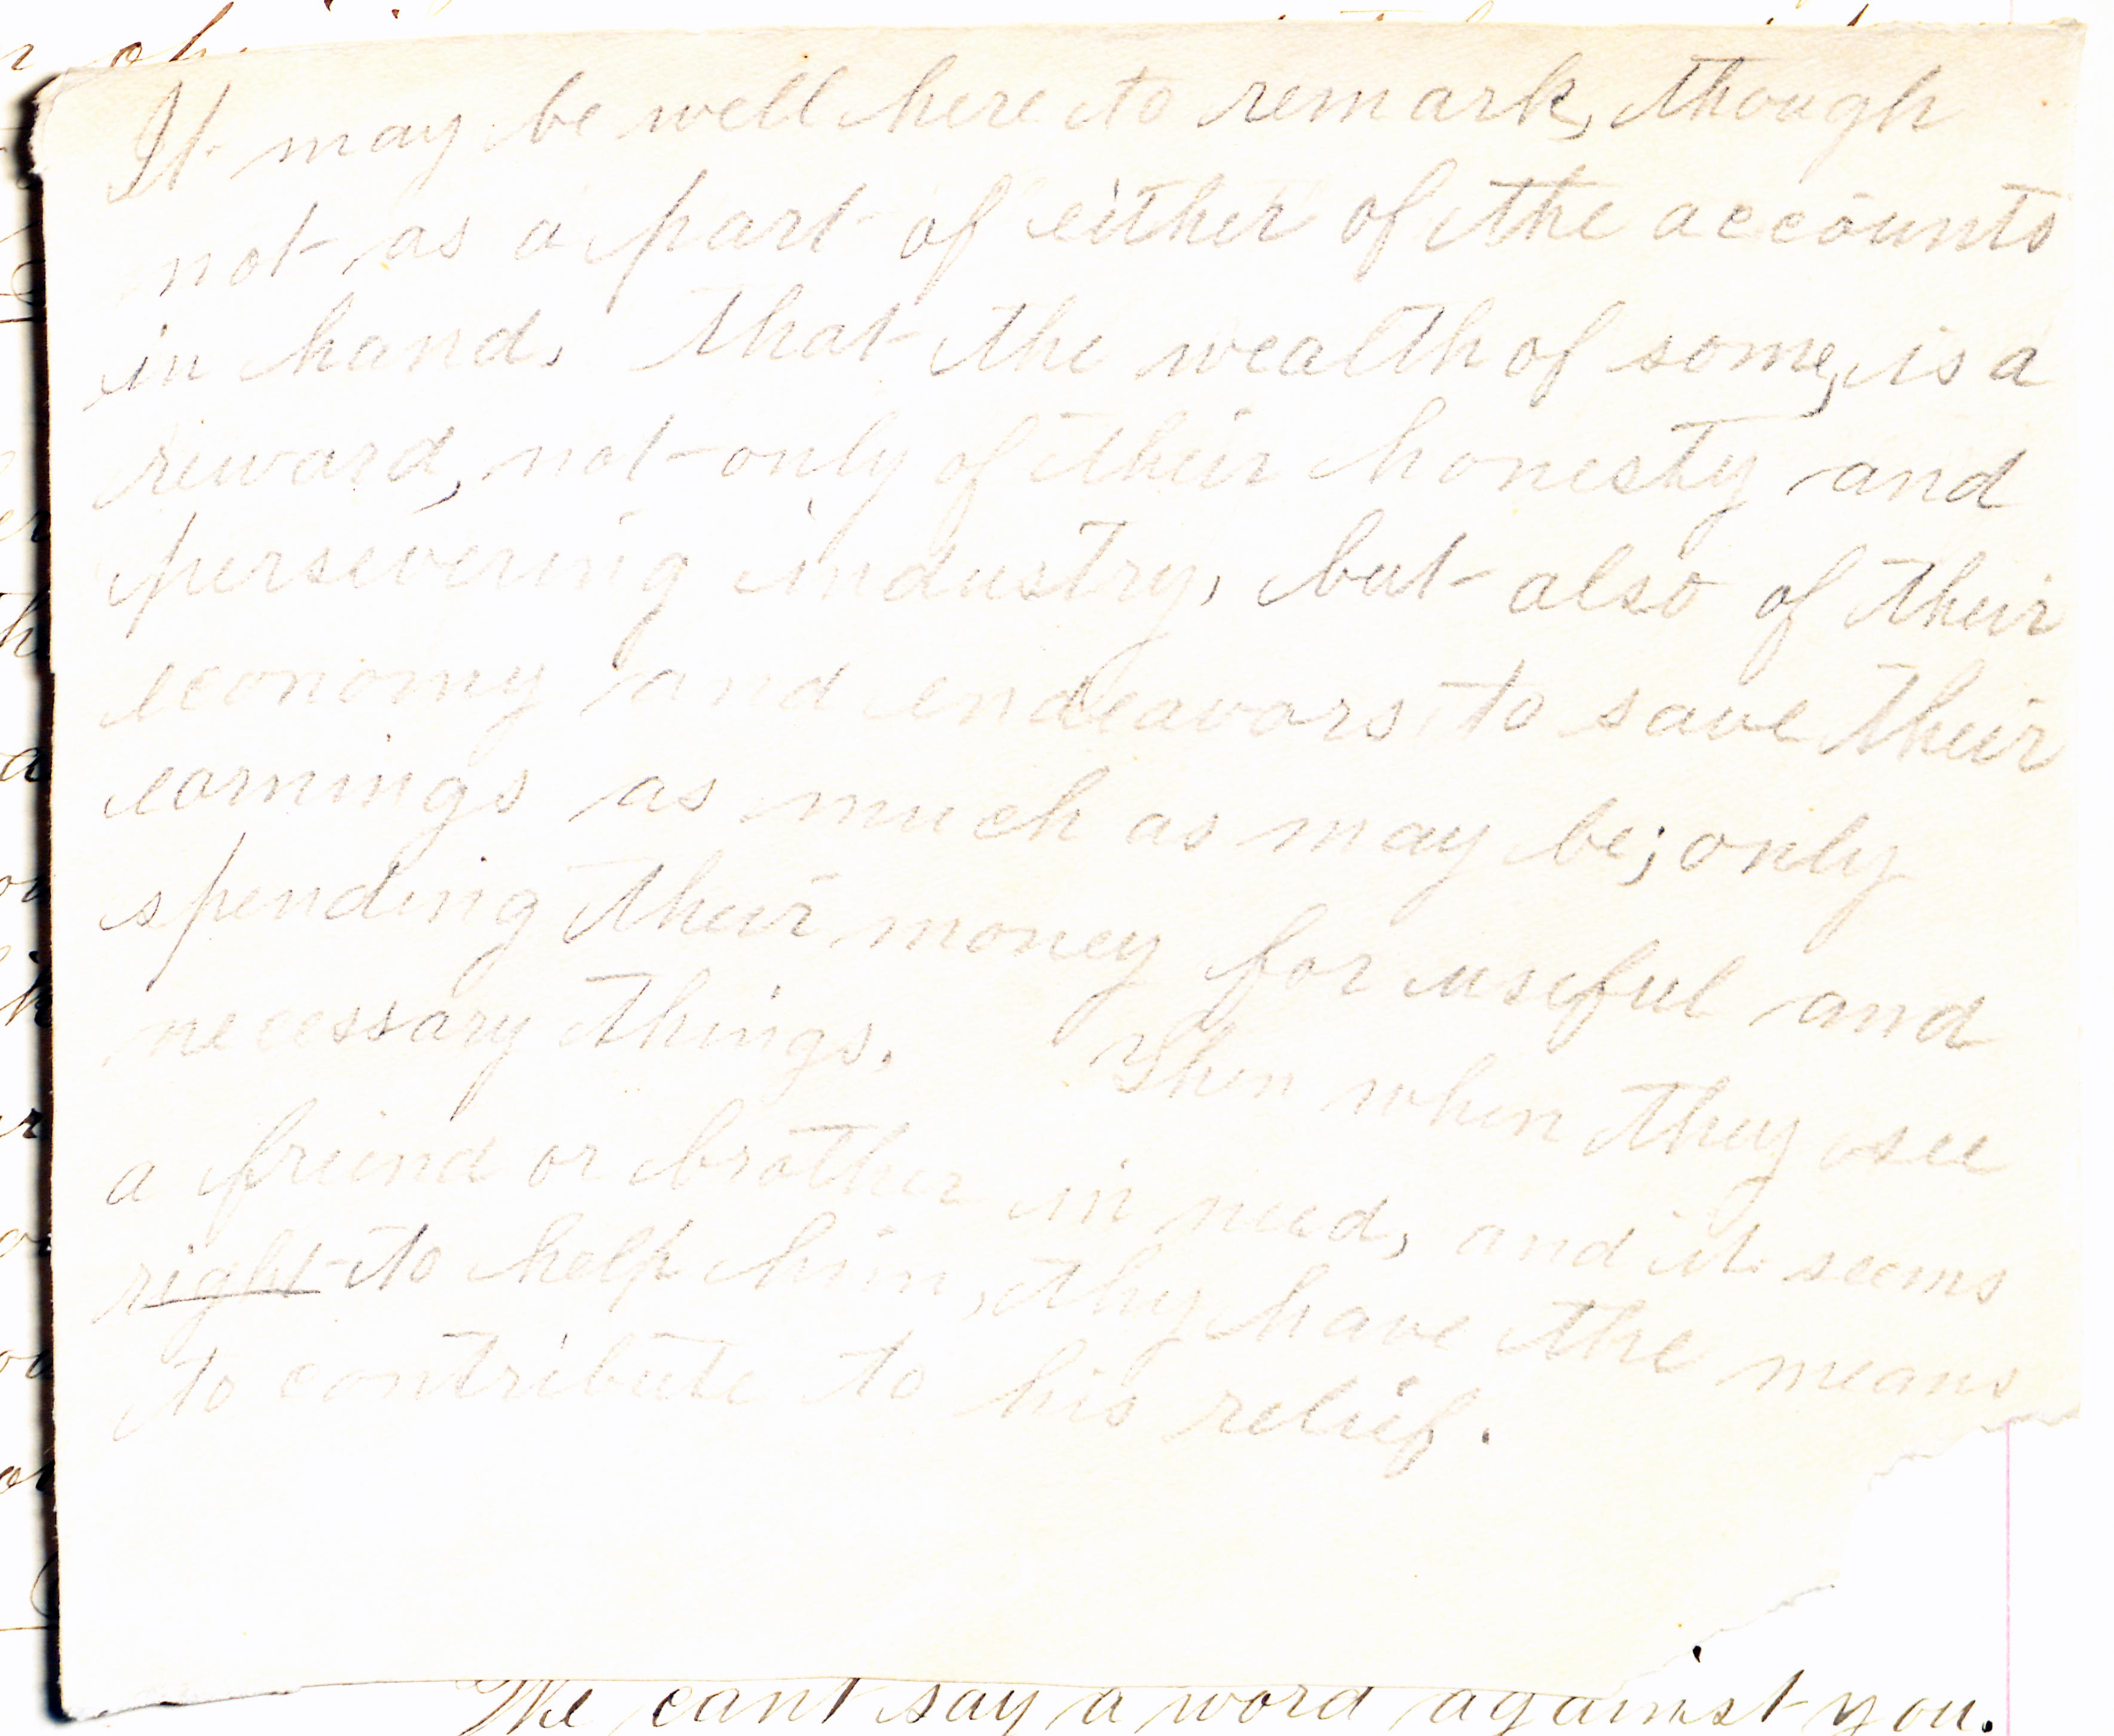 It may be well here to remark, though
not as a part of either of the accounts
in hand, that the wealth of some, is a
reward, not only of their honesty and
persevering industry, but also of their
economy and endeavors to save their
earnings as much as may be; only
spending their money for useful and
necessary things. Then when they see
a friend or brother in need, and it seems
right to help him, they have the means
to contribute to his relief.
We cant say a word against you.